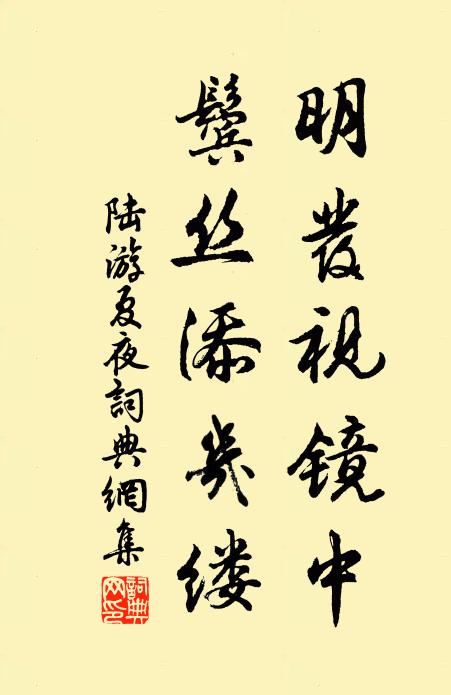 明发视镜中
鬓丝添几缕
陆游夏夜詞典網集
詞典网印